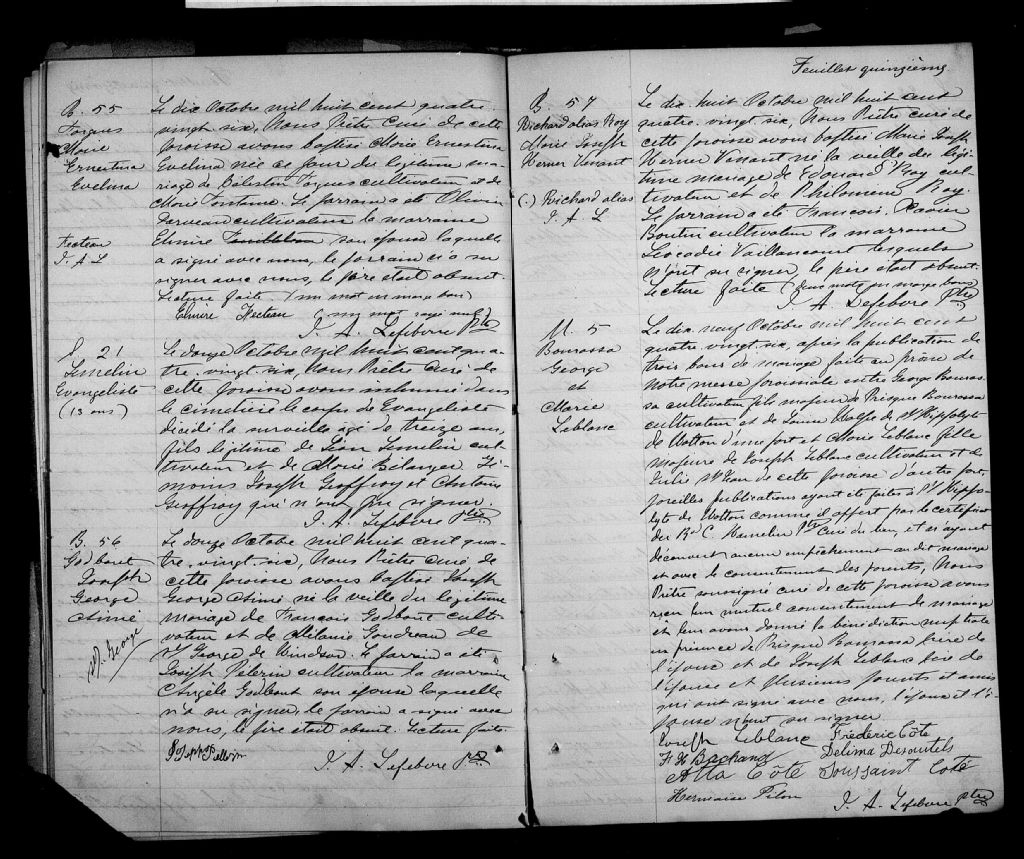 B. 55
Fargues
Marie
Ernestina
Evelina
Fecteau
J. A. L
Le dix Octobre mil huit cent quatre
vingt six, Nous Prêtre Curé de cette
paroisse avons baptisé Marie Ernestina
Evelina née ce jour du légitime ma-
riage de Célestin Fargues cultivateur et de
Marie Fontaine. Le parrain a été Olivier
cultivateur la marraine
Elmire son épouse laquelle
a signé avec nous, le parrain n'a su
signer avec nous, le père était absent.
Lecture faite (un mot en marge bon)
Elmire Fecteau (un mot rayé nul)
J. A. Lefebvre Ptre
S. 21
Evangeliste
(13 ans)
Le douze Octobre mil huit cent qua-
tre-vingt-six, Nous Prêtre Curé de
cette paroisse avons inhumé dans
le cimetière le corps de Evangeliste
décédé la surveille agé de treize ans,
fils légitime de Léon cul-
tivateur et de Marie Bélanger. Té-
moins Joseph Geoffroy et
Geoffroy qui n'ont pu signer.
J. A. Lefebvre Ptre
B. 56
Godbout
Joseph
George
Aimé
St. George
Le douze Octobre mil huit cent qua-
tre-vingt-six, Nous Prêtre Curé de
cette paroisse avons baptisé Joseph
George Aimé né la veille du légitime
mariage de François Godbout culti-
vateur et de Mélanie Goudreau de
St George de Windsor. Le parrain a été
Joseph Pélerin cultivateur la marraine
Angèle Godbout son épouse laquelle
n'a su signer, le parrain a signé avec
nous, le père était absent. Lecture faite.
J. A. Lefebvre Ptre
Feuillet quinzième
B. 57
Richard alias Roy
Marie Joseph
Werner Vinant
(.) Richard alias
J. A. L
Le dix huit Octobre mil huit cent
quatre-vingt six, Nous Prêtre curé de
cette paroisse avons baptisé Marie Joseph
Werner Vinant né la veille du légi-
time mariage de Edouard Roy cul-
tivateur et de Philomène Roy.
Le parrain a été François Xavier
Boutin cultivateur la marraine
Léocadie Vaillancourt lesquels
n'ont su signer, le père était absent.
Lecture faite (deux mots en marge bons)
J. A. Lefebvre Ptre
M. 5
Bourassa
George
et
Marie
Leblanc
Le dix neuf Octobre mil huit cent
quatre-vingt-six, après la publication de
trois bans de mariage faite au prône de
notre messe paroissiale entre George Bouras-
sa cultivateur fils majeur de Prisque Bourassa
cultivateur et de Louise Wolfe de St Hippolyte
de Wotton d'une part et Marie Leblanc fille
majeure de Joseph Leblanc cultivateur et de
Julie St Jean de cette paroisse d'autre part,
pareilles publications ayant été faites à St Hippo-
lyte de Wotton comme il appert par le certificat
du Rd C. Hamelin Ptre Curé du lieu, et n'ayant
découvert aucun empêchement au dit mariage
et avec le consentement des parents, Nous
Prêtre soussigné curé de cette paroisse avons
reçu leur mutuel consentement de mariage
et leur avons donné la bénédiction nuptiale
en présence de Prisque Bourassa père de
l'époux et de Joseph Leblanc père de
l'épouse et plusieurs parents et amis
qui ont signé avec nous, l'époux et l'é-
pouse n'ont su signer.
Joseph Leblanc Frédéric Côté
F. H Bachand Delima Desautels
Alta Côté Toussaint Coté
Hermaise Pilon
J. A. Lefebvre Ptre